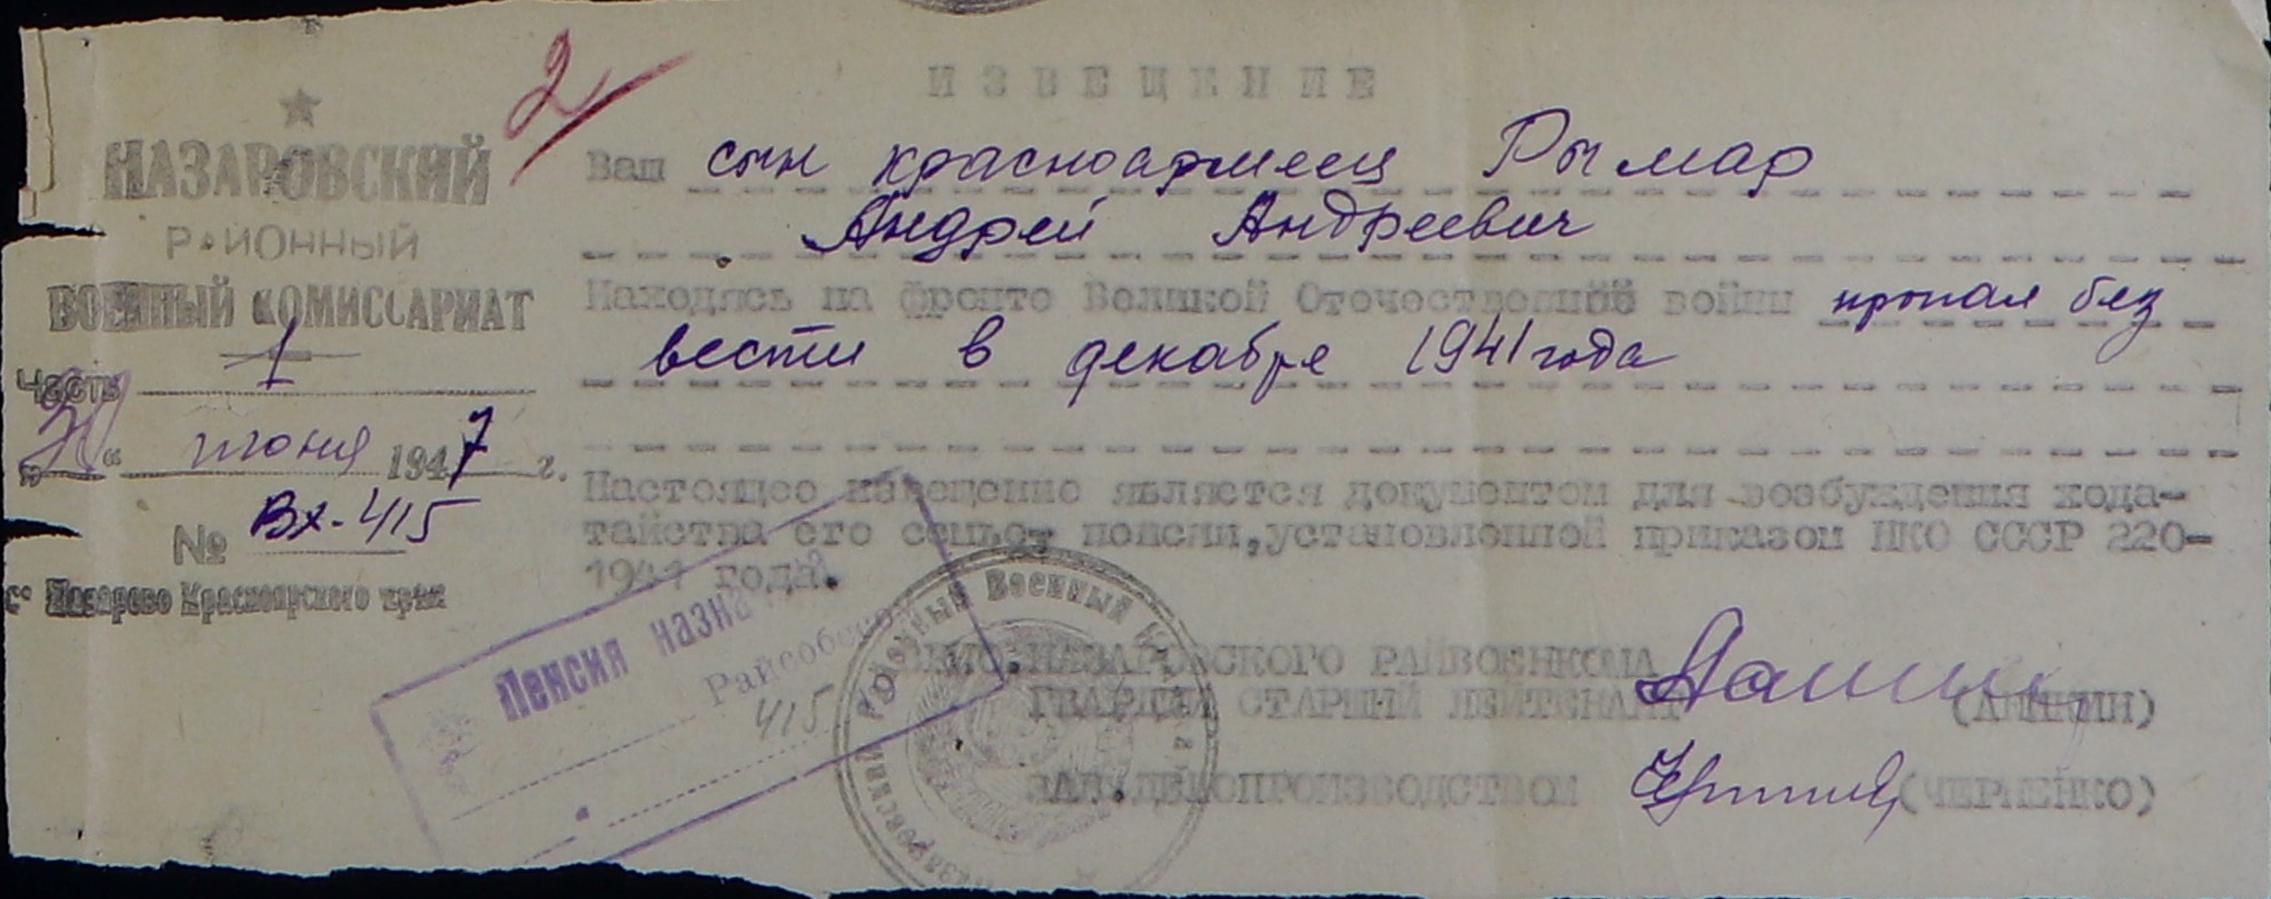 2
НАЗАРОВСКИЙ
РАЙОННЫЙ
ВОЕННЫЙ КОМИССАРИАТ
Часть 1
" " июня 1947 г.
№ Вх-415
с. Назарово Красноярского края
ИЗВЕЩЕНИЕ
Ваш сын красноармеец Рымар
Андрей Андреевич
Находясь на фронте Великой Отечественной войны пропал без
вести в декабре 1941 года
Настоящее извещение является документом для возбуждения хода-
тайства его семьей пенсии, установленной приказом НКО СССР 220-
1941 года.
Пенсия назна
Райсобесо
415
Назаровский Районный Военный
НАЗАРОВСКОГО РАЙВОЕНКОМА
ГВАРДИИ СТАРШИЙ ЛЕЙТЕНАНТ (АНИКИН)
ЗАВ. ДЕЛОПРОИЗВОДСТВОМ (ЧЕРНЕЙКО)